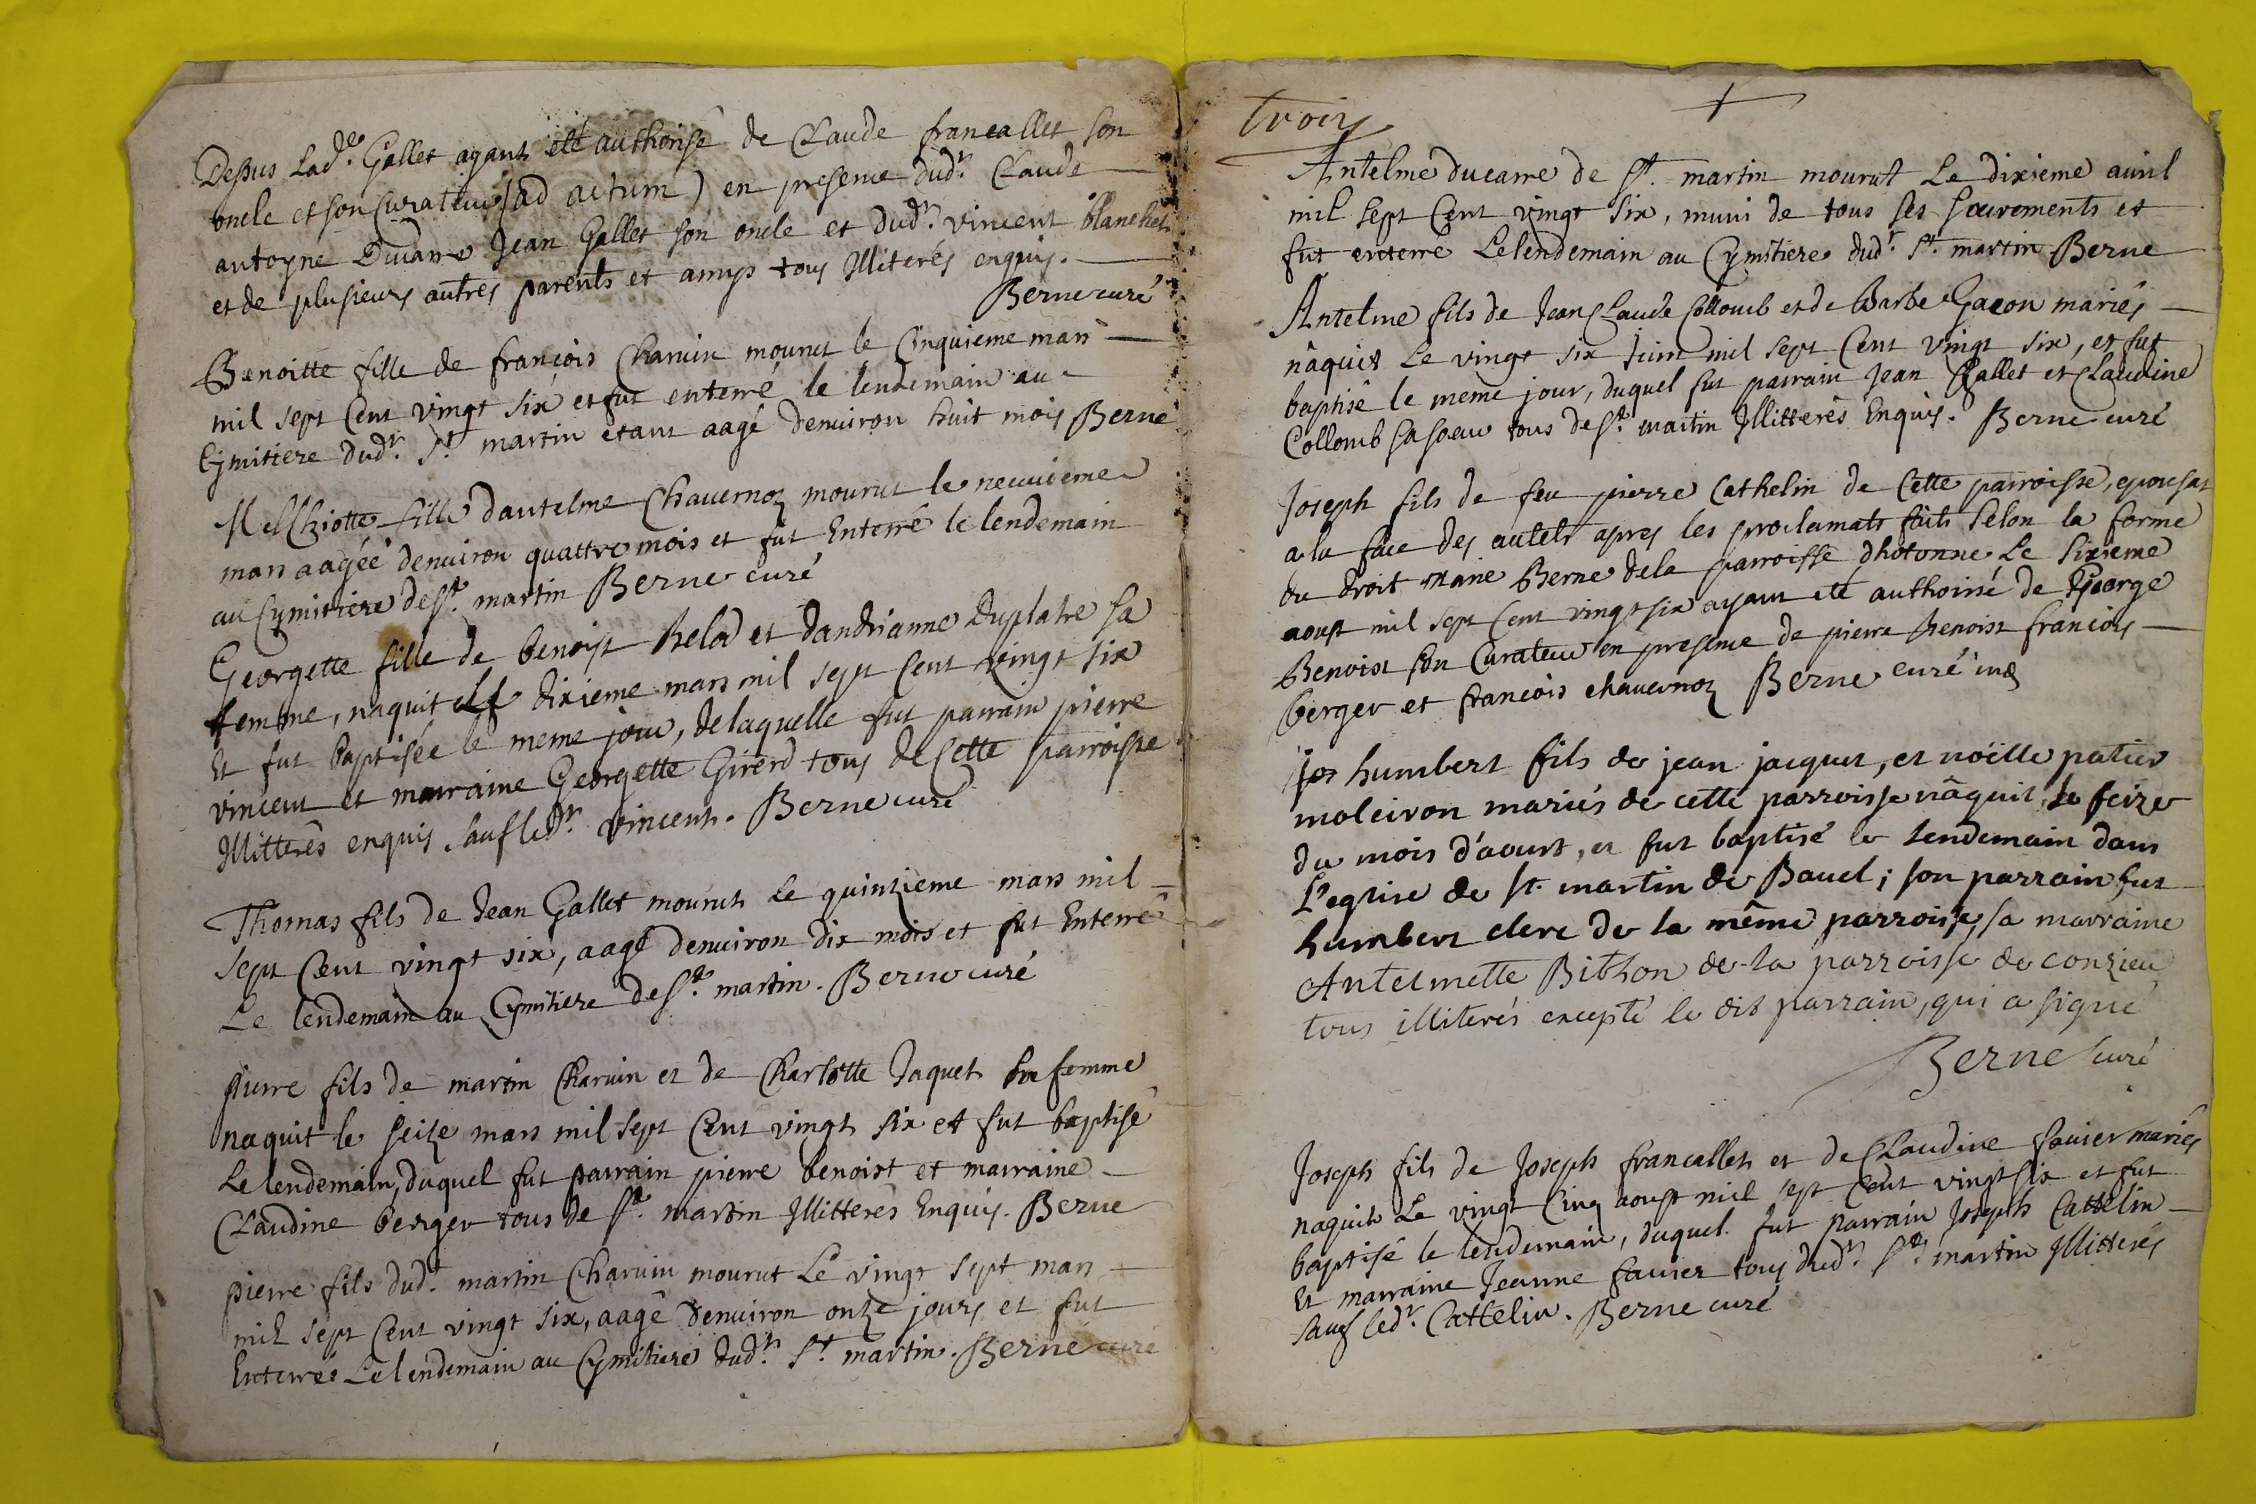 Depuis Lad.e Gallet ayant eté authorisé de Claude francallet son
oncle et son Curateur (ad actum) en presence dud.t Claude
antoyne Ducarre Jean Gallet son oncle et dud.t vincent blanchet
et de plusieurs autres parents et amys tous Illiterés enquis.
Berne curé
Benoitte fille de françois Charvin mourut le Cinquieme mars
mil sept Cent vingt six et fut enterré le lendemain au
Cymitiere dud.t S.t martin etant aagé denuiron huit mois Berne
Melchiotte fille dantelme Chauernoz mourut le neuuieme
mars aagée denuiron quattre mois et fut Enterré le lendemain
au Cymitiere de S.t martin Berne curé
Georgette fille de benoist belad et dandrianne Duplatre sa
femme, naquit le dixieme mars mil sept Cent vingt six
Et fut baptisée le meme jour, delaquelle fut parrain pierre
vincent et marraine Georgette Girerd tous de Cette parroisse
Illitterés enquis sauf led.t vincent. Berne curé
Thomas fils de Jean Gallet mourut Le quinzieme mars mil
sept Cent vingt six, aagé denuiron dix mois et fut Enterré
Le lendemain au Cymitiere de S.t martin. Berne curé
pierre fils de martin Charuin et de Charlotte Jaquet sa femme
naquit le seize mars mil sept Cent vingt six et fut baptisé
Le lendemain, duquel fut parrain pierre benoist et marraine
Claudine berger tous de S.t martin Illitterés Enquis. Berne
pierre fils dud.t martin Charuin mourut Le vingt sept mars
mil sept Cent vingt six, aagé denuiron onze jours et fut
Enterré Le lendemain au Cymitiere dud.t S.t martin. Berne curé
trois
Antelme ducarre de S.t martin mourut Le dixieme auril
mil sept Cent vingt six, muni de tous ses sacrements et
fut enterré Le lendemain au Cymitiere dud.t S.t martin Berne
Antelme fils de Jean Claude Colloub et de Barbe Gacon mariés
nâquit Le vingt six Juin mil sept Cent vingt six, et fut
baptisé le meme jour, duquel fut parrain Jean Gallet et Claudine
Collomb sa soeur tous de S.t martin Illitterés Enquis. Berne curé
Joseph fils de feu pierre Cathelin de Cette parroisse, epousat
a la face des autels apres les proclamats faits selon la forme
du droit marie Berne dela parroisse dhotonne Le sixieme
aoust mil sept Cent vingt six ayant eté authorisé de George
Benoist son Curateur en presence de pierre benoist francois
berger et françois chauernoz Berne curé
humbert fils de jean jacquet, et noëlle patier
moleiron mariés de cette parroisse nâquit le seize
du mois d'aoust, et fut baptisé le lendemain dans
L'eglise de St. martin de Bavel; son parrain fut
humbert clerc de la même parroisse, sa marraine
Antelmette Bithon de la parroisse de conzieu
tous illiterés excepté le dit parrain, qui a signé
Berne curé
Joseph fils de Joseph francallet et de Claudine fauier mariés
naquit Le vingt Cinq aoust mil sept Cent vingt six et fut
baptisé le lendemain, duquel fut parrain Joseph Cattelin
Et marraine Jeanne fauier tous dud.t S.t martin Illitterés
sauf led.t Cattelin. Berne curé